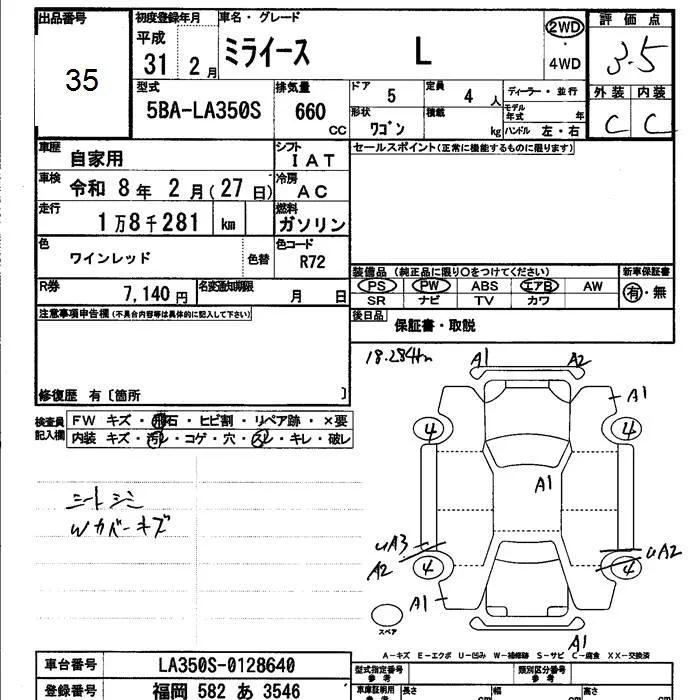 出品番号 初度登録年月 車名・グレード 2WD 評価点
35 平成 31 2月 ミライース L 4WD 3.5
型式 5BA-LA350S 排気量 660 cc ドア 5 定員 4人 ディーラー・並行 外装 内装
形状 ワゴン 積載 kg モデル年式 年 ハンドル 左・右 C C
車歴 自家用 シフト IAT セールスポイント(正常に機能するものに限ります)
車検 令和 8年 2月(27日) 冷房 AC
走行 1万8千281 km 燃料 ガソリン
色 ワインレッド 色替 色コード R72
装備品 (純正品に限り○をつけてください) 新車保証書
R券 7,140円 名変通知期限 月 日 PS PW ABS エアB AW 有・無
SR ナビ TV カワ
注意事項申告欄(不具合内容等は具体的に記入して下さい) 後日品 保証書・取説
18.284km
A1 A2
修復歴 有〔箇所 〕 A1
検査員記入欄 FW キズ・飛石・ヒビ割・リペア跡・×要
内装 キズ・汚レ・コゲ・穴・スレ・キレ・破レ
4 4
A1
シートシミ
Wカバーキズ
UA3 UA2
A2 4 4
A1
スペア
A1
A-キズ E-エクボ U-凹み W-補修跡 S-サビ C-腐食 XX-交換済
車台番号 LA350S-0128640 型式指定番号 参考 類別区分番号 参考
登録番号 福岡 582 あ 3546 車庫証明用 参考 長さ cm 幅 cm 高さ cm